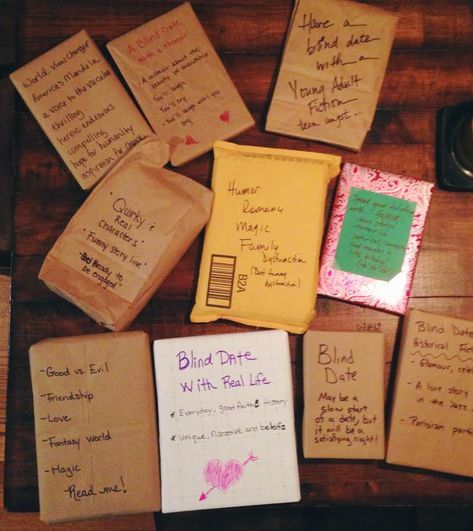 World View Changer
America's Mandela
a voice to the voiceless
thrilling
heroic endeavors
compelling
hope for humanity
inspiration for
A Blind Date
With a Memoir
A memoir about the
beauties of friendship
You'll laugh
You'll cry
You'll laugh until you
cry
Have a
blind date
with a
Young Adult
Fiction
teen angst...
"Quirky &
Real
Characters"
"Funny story line"
Ready to
be engaged"
Humor
Romance
Magic
Family
Dysfunction
(but funny
dysfunction)
B2A
with a
short stories
- Good vs. Evil
- Friendship
- Love
- Fantasy World
- Magic
Read me!
Blind Date
With Real Life
* Everyday, good faith & history
* Unique, Narrative and beliefs
Blind
Date
May be a
slow start
of a date, but
it will be a
satisfying night!
Blind Da
Historical Fic
- Glamour, cele
- A love story
in the Jazz
- Parisian part